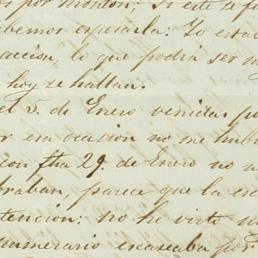 por monton; Si este se f
bemos esperarla: Yo esta
accion, lo que podrá ser m
hoy se hallan.
el 5. de Enero venida; p
era ocasion no me
con fha 29. de Enero no
braban, parece que la es
tencion: no he visto
numerario escaseaba por